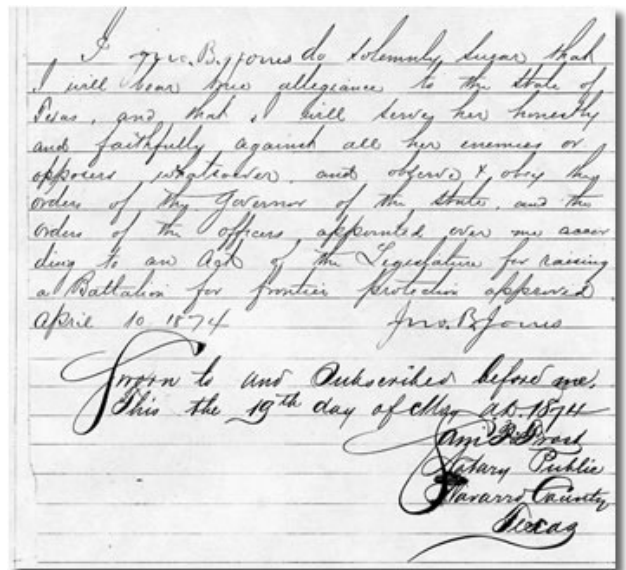 I Jno. B. Jones do Solemnly Swear that
I will bear true allegiance to the State of
Texas, and that I will serve her honestly
and faithfully against all her enemies or
opposers whatsoever, and observe & obey the
orders of the Governor of the State, and the
orders of the officers appointed over me accor
ding to an Act of the Legislature for raising
a Battalion for frontier protection approved
April 10 1874 Jno. B. Jones
Sworn to and Subscribed before me.
This the 19th day of May AD. 1874
Sam R Frost
Notary Public
Navarro County
Texas